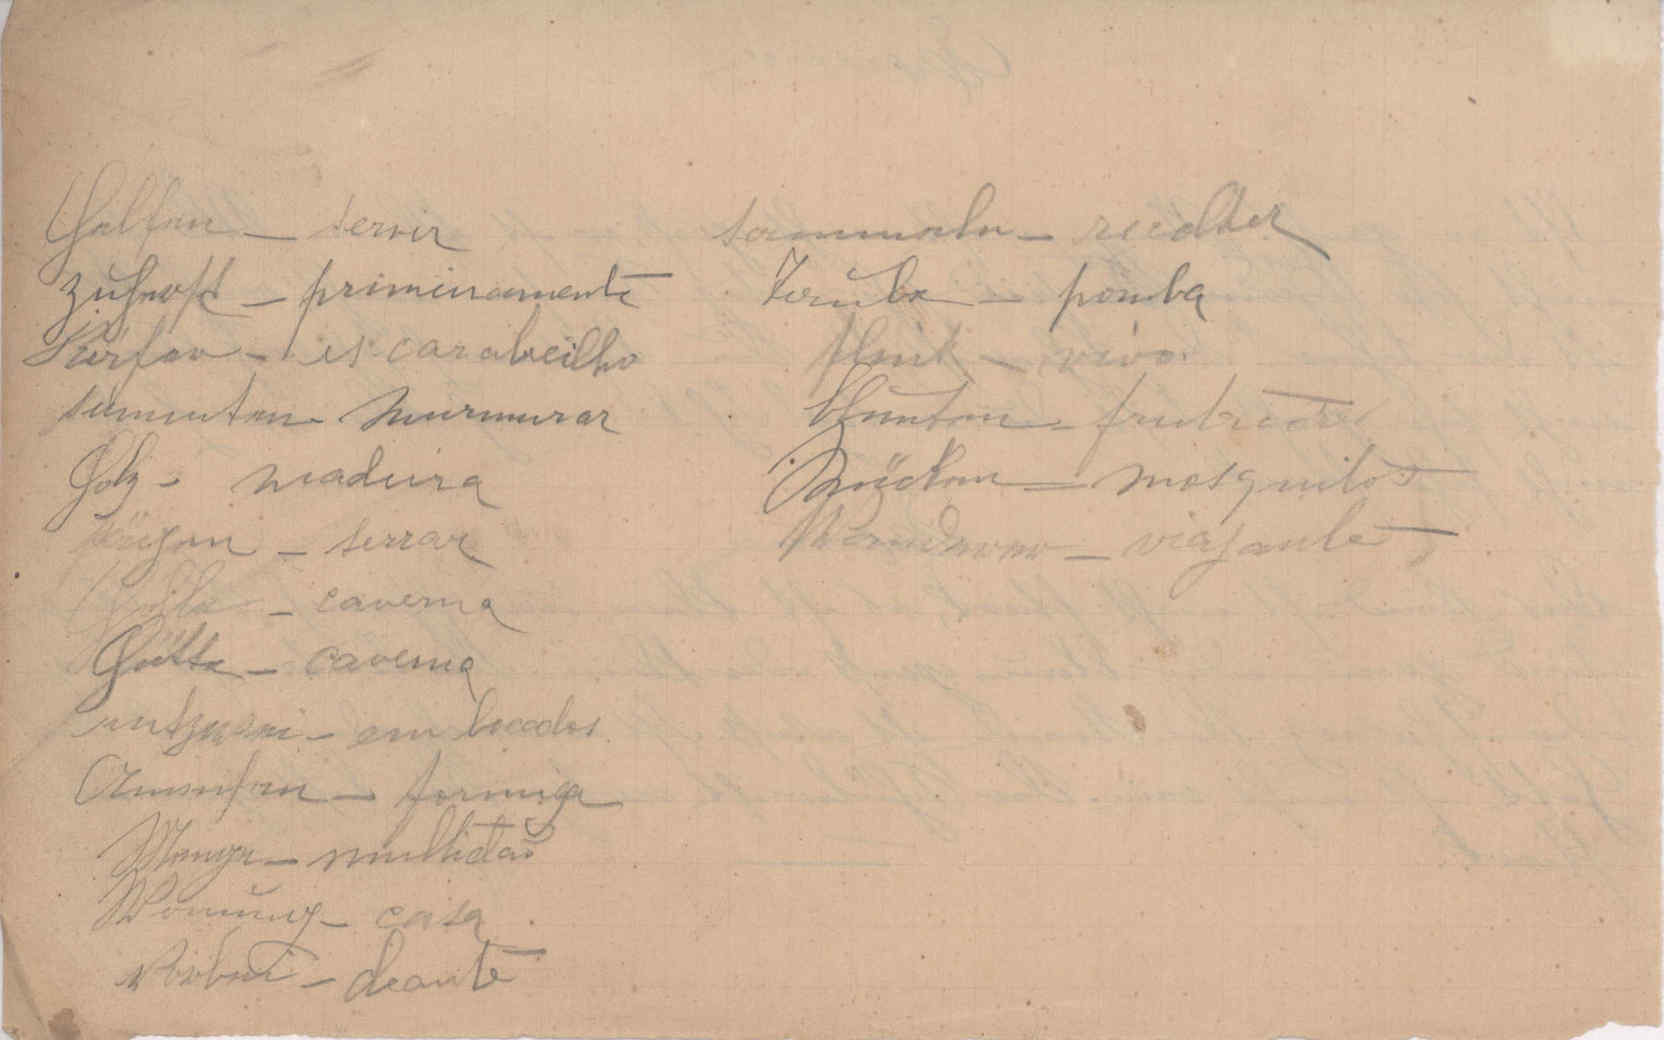 Helfen – servir
zuerst – primeiramente
Käfer – escarabeilho
summten – murmurar
Holz – madeira
sägen – serrar
Höhle – caverna
Hütte – caverna
entzwei – em bocados
Ameisen – formiga
Menge – multidão
Wonung – casa
vorbei – deante
sammeln – recolher
Taube – pomba
flink – vivo
Mücken – mosquitos
Wanderer – viajante